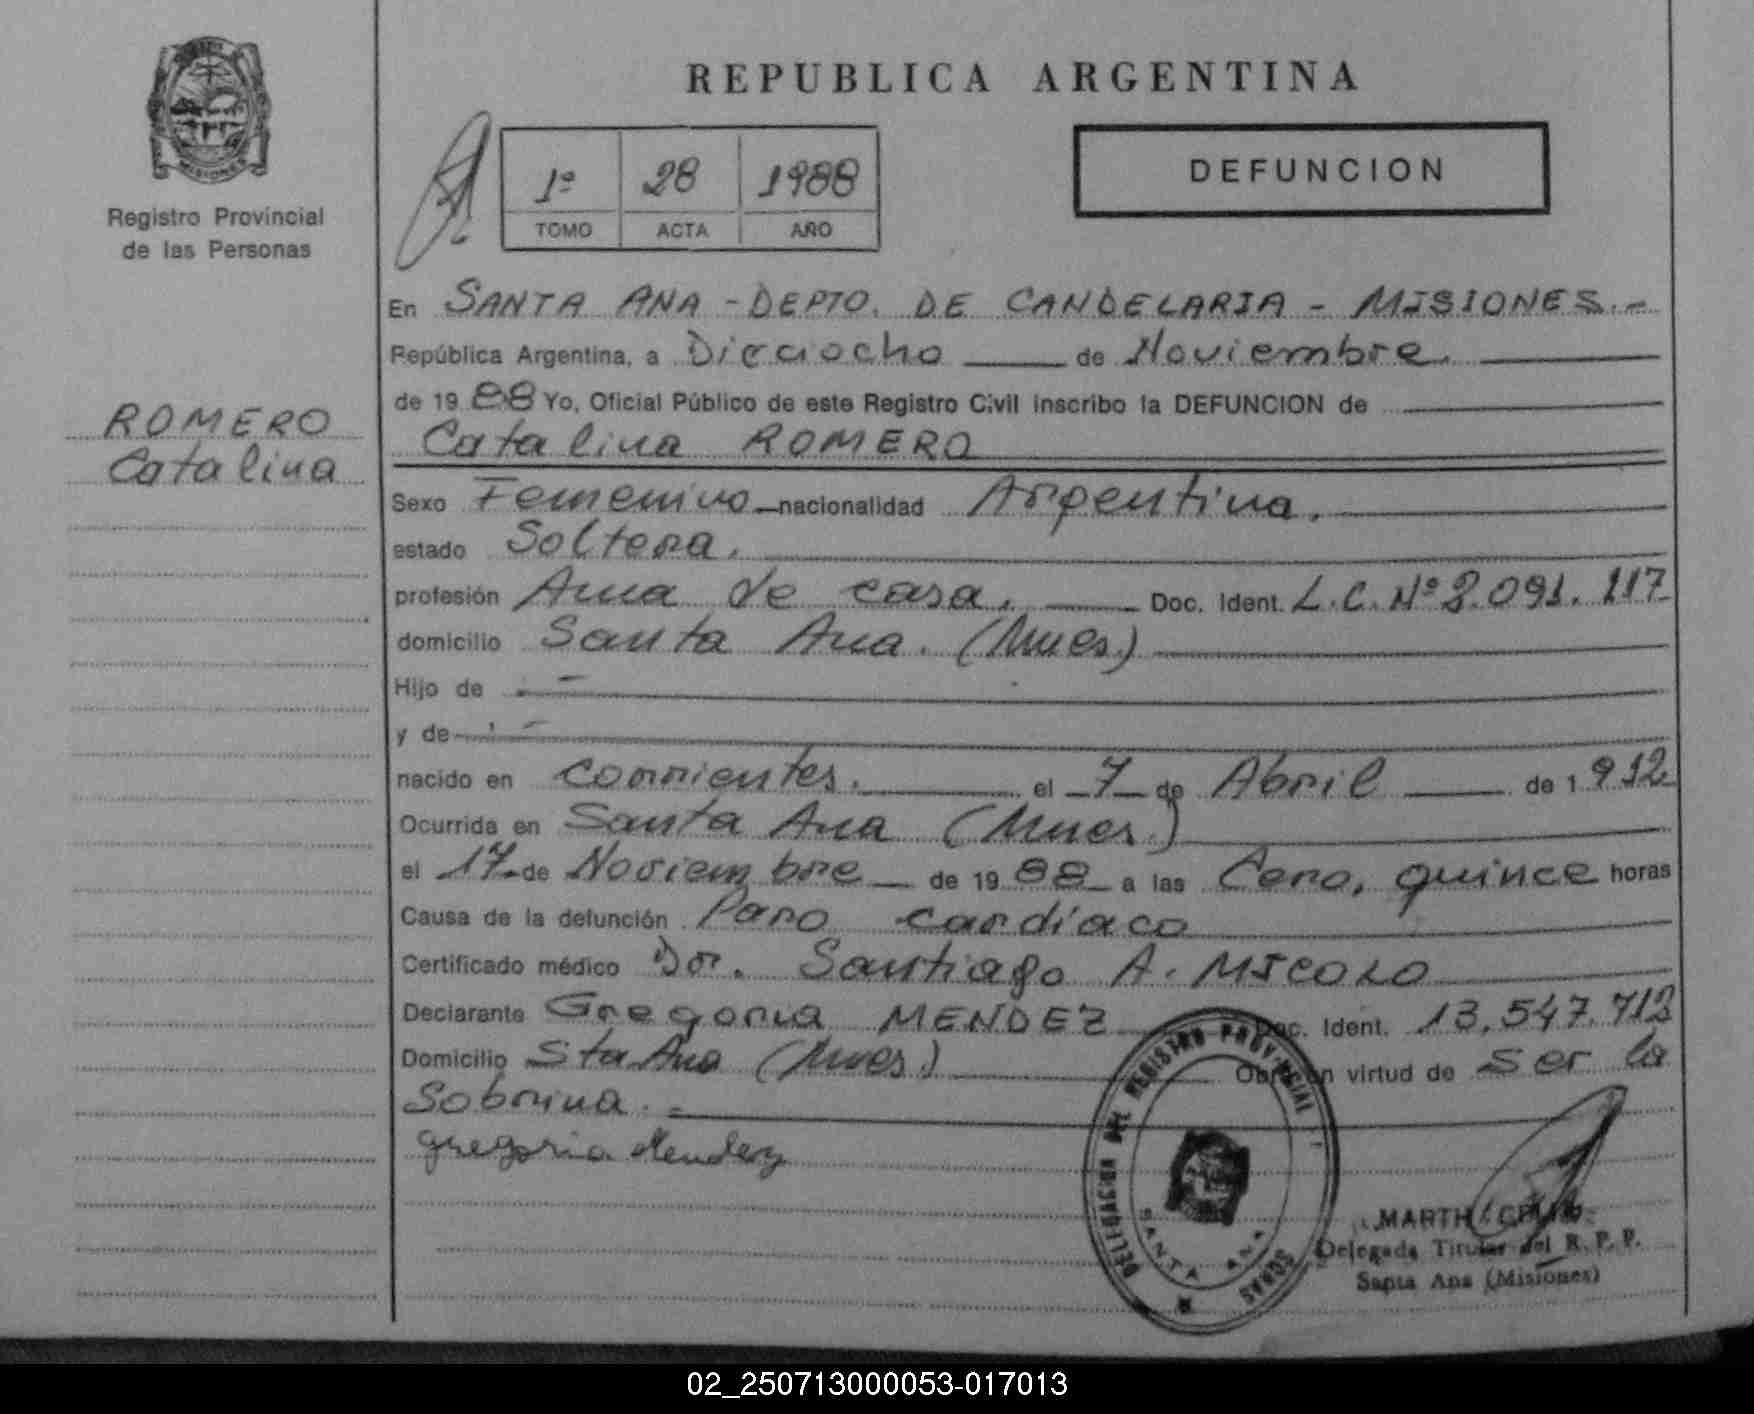 MISIONES
Registro Provincial
de las Personas
ROMERO
Catalina
REPUBLICA ARGENTINA
1º 28 1988
TOMO ACTA AÑO
DEFUNCION
En SANTA ANA - DEPTO. DE CANDELARIA - MISIONES.-
República Argentina, a Dieciocho de Noviembre.
de 1988 Yo, Oficial Público de este Registro Civil inscribo la DEFUNCION de
Catalina ROMERO
Sexo Femenino nacionalidad Argentina.
estado Soltera.
profesión Ama de casa. Doc. Ident. L.C. Nº 2.091.117
domicilio Santa Ana. (Mnes.)
Hijo de . -
y de . -
nacido en Corrientes. el 7 de Abril de 1.912
Ocurrida en Santa Ana (Mnes.)
el 17 de Noviembre de 1988 a las Cero, quince horas
Causa de la defunción Paro cardíaco
Certificado médico Dr. Santiago A. MICOLO
Declarante Gregoria MENDEZ Doc. Ident. 13.547.712
Domicilio Sta Ana (Mnes.) Obra en virtud de ser la
Sobrina. -
Gregoria Mendez
DELEGACION DEL REGISTRO PROVINCIAL DE
SANTA ANA
MARTHA
Delegada Titular del R. P. P.
Santa Ana (Misiones)
02_250713000053-017013